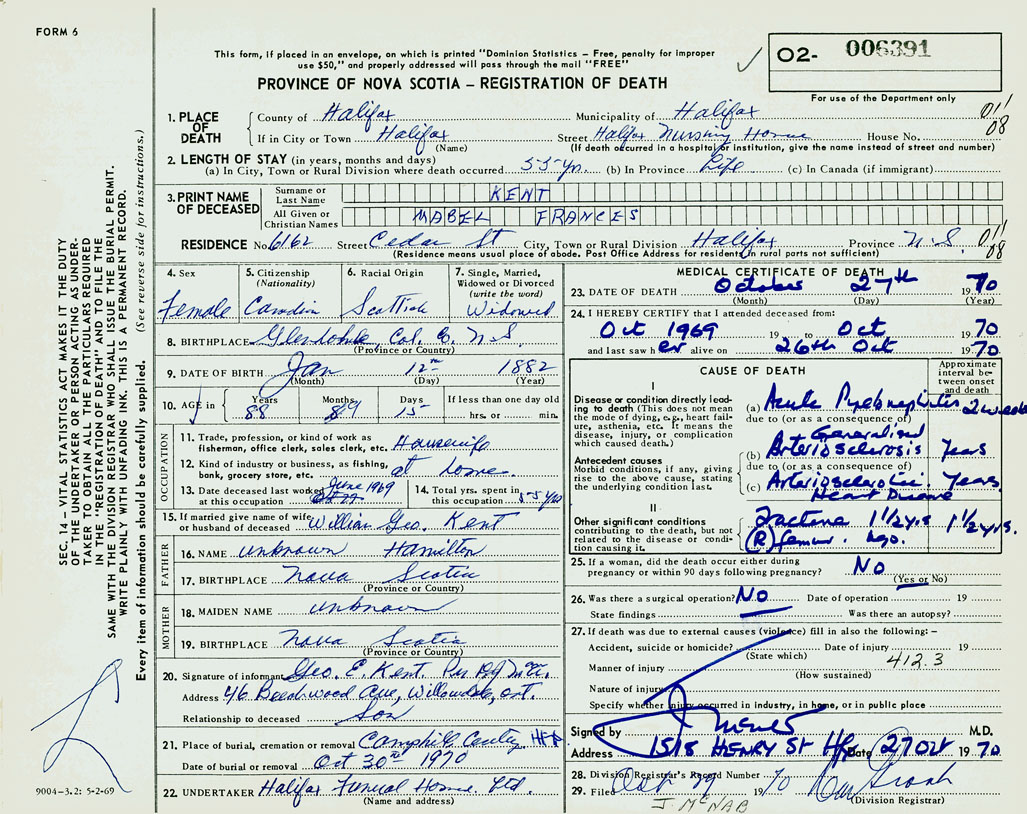 FORM 6
This form, if placed in an envelope, on which is printed "Dominion Statistics – Free, penalty for improper
use $50," and properly addressed will pass through the mail "FREE"
PROVINCE OF NOVA SCOTIA – REGISTRATION OF DEATH
02- 006391
For use of the Department only
SEC. 14 – VITAL STATISTICS ACT MAKES IT THE DUTY
OF THE UNDERTAKER OR PERSON ACTING AS UNDER-
TAKER TO OBTAIN ALL THE PARTICULARS REQUIRED
IN THE "REGISTRATION OF DEATH" AND TO FILE THE
SAME WITH THE DIVISION REGISTRAR WHO SHALL ISSUE THE BURIAL PERMIT.
WRITE PLAINLY WITH UNFADING INK. THIS IS A PERMANENT RECORD.
Every item of information should be carefully supplied. (See reverse side for instructions.)
1. PLACE OF DEATH
County of Halifax Municipality of Halifax
If in City or Town Halifax Street Halifax Nursing Home House No.
(Name) (If death occurred in a hospital or institution, give the name instead of street and number)
01'
08
2. LENGTH OF STAY (in years, months and days)
(a) In City, Town or Rural Division where death occurred 55 yrs. (b) In Province Life (c) In Canada (if immigrant)
3. PRINT NAME OF DECEASED
Surname or Last Name KENT
All Given or Christian Names MABEL FRANCES
RESIDENCE No. 6162 Street Cedar St City, Town or Rural Division Halifax Province N.S.
(Residence means usual place of abode. Post Office Address for residents in rural parts not sufficient)
01'
08
4. Sex Female
5. Citizenship (Nationality)
6. Racial Origin Scottish
7. Single, Married, Widowed or Divorced (write the word) Widowed
8. BIRTHPLACE Col. Co. N.S.
(Province or Country)
9. DATE OF BIRTH Jan 12th 1882
(Month) (Day) (Year)
10. AGE in Years 88 Months 9 Days 15 If less than one day old
hrs. or min.
OCCUPATION
11. Trade, profession, or kind of work as
fisherman, office clerk, sales clerk, etc. Housewife
12. Kind of industry or business, as fishing,
bank, grocery store, etc. at home
13. Date deceased last worked at this occupation June 1969
14. Total yrs. spent in this occupation 55 yrs
15. If married give name of wife
or husband of deceased William Geo. Kent
FATHER
16. NAME unknown Hamilton
17. BIRTHPLACE Nova Scotia
(Province or Country)
MOTHER
18. MAIDEN NAME unknown
19. BIRTHPLACE Nova Scotia
(Province or Country)
20. Signature of informant Geo. E. Kent. Per
Address 46 Beechwood Ave, Willowdale, Ont.
Relationship to deceased Son
21. Place of burial, cremation or removal
Date of burial or removal Oct 30th 1970
22. UNDERTAKER Halifax Funeral Home Ltd.
(Name and address)
9004-3.2: 5-2-69
MEDICAL CERTIFICATE OF DEATH
23. DATE OF DEATH October 27th 1970
(Month) (Day) (Year)
24. I HEREBY CERTIFY that I attended deceased from:
Oct 1969 19 to Oct 1970
and last saw her alive on 26th Oct 1970
CAUSE OF DEATH
Approximate interval between onset and death
I
Disease or condition directly lead-
ing to death (This does not mean
the mode of dying, e.g., heart fail-
ure, asthenia, etc. It means the
disease, injury, or complication
which caused death.)
(a) Acute Pyelonephritis 2 weeks
due to (or as a consequence of)
Antecedent causes
Morbid conditions, if any, giving
rise to the above cause, stating
the underlying condition last.
(b) Generalised Arteriosclerosis Years
due to (or as a consequence of)
(c) Arteriosclerotic Heart Disease Years
II
Other significant conditions
contributing to the death, but not
related to the disease or condi-
tion causing it.
Fracture 1 1/2 yrs 1 1/2 yrs.
(R) femur. ago.
25. If a woman, did the death occur either during
pregnancy or within 90 days following pregnancy? No
(Yes or No)
26. Was there a surgical operation? No Date of operation 19
State findings Was there an autopsy?
27. If death was due to external causes (violence) fill in also the following:–
Accident, suicide or homicide? Date of injury 19
(State which) 412.3
Manner of injury
(How sustained)
Nature of injury
Specify whether injury occurred in industry, in home, or in public place
Signed by M.D.
Address 1518 HENRY ST Hfx Date 27 Oct 1970
28. Division Registrar's Record Number
29. Filed Oct 29 1970
(Division Registrar)
J. MCNAB